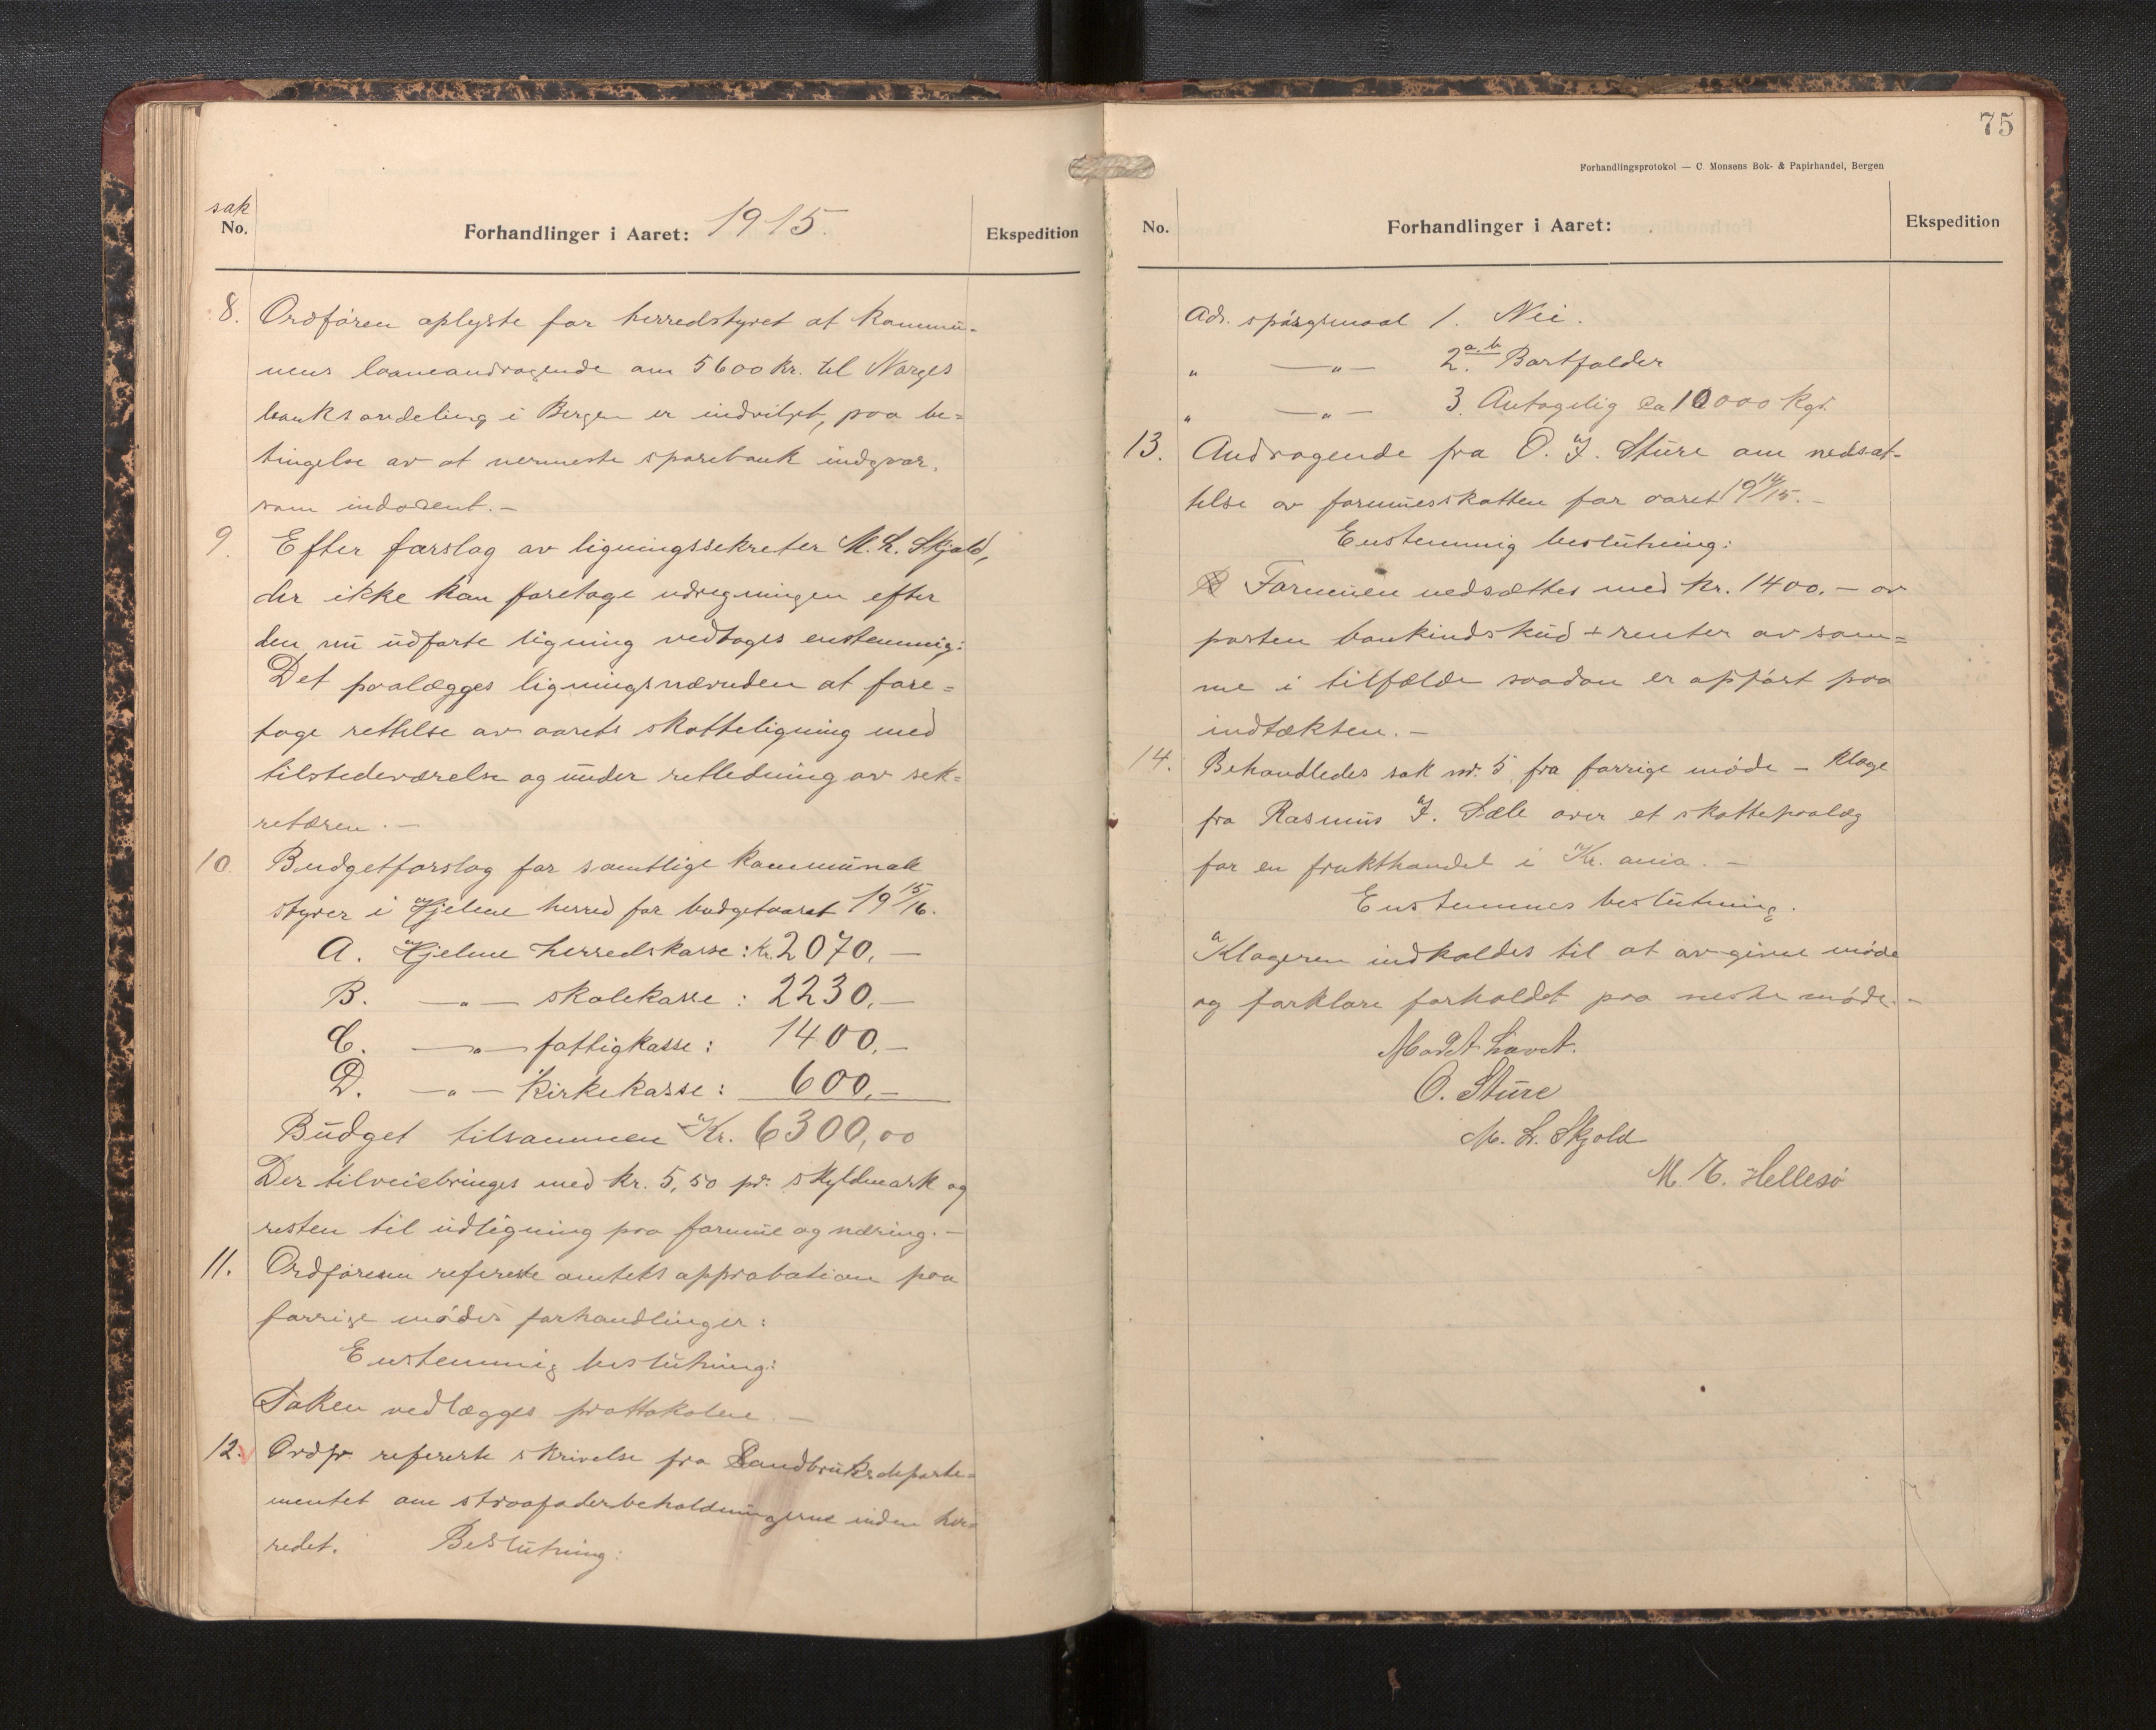 sak
No.
Forhandlinger i Aaret: 1915.
Ekspedition
8. Ordføren oplyste for herredstyret at kommu-
nens laaneandragende om 5600 kr. til Norges
banks avdeling i Bergen er indvilget, paa be-
tingelse av at nermeste sparebank indgaar
som indosent. -
9. Efter forslag av ligningssekretær M. L. Skjold,
der ikke kan foretage udregningen efter
den nu udførte ligning vedtoges enstemmig:
Det paalægges ligningsnævnden at fore-
tage rettelse av aarets skatteligning med
tilstedeværelse og under retledning av sek-
retæren. -
10. Budgetforslag for samtlige kommunale
styrer i Hjelme herred for budgetaaret 19 15/16.
A. Hjelme herredskasse: Kr. 2070,-
B. -"- skolekasse: 2230,-
C. -"- fattigkasse: 1400,-
D. -"- Kirkekasse: 600,-
Budget tilsammen Kr. 6300,00
Der tilveiebringes med kr. 5,50 pr. skyldmark og
resten til udligning paa formue og næring. -
11. Ordføreren refererte amtets approbation paa
forrige mødes forhandlinger:
Enstemmig beslutning:
Saken vedlægges prottokolene. -
12. Ordfr. refererte skrivelse fra Landbruksdeparte-
mentet om straafoderbeholdningerne inden her-
redet. Beslutning:
75
Forhandlingsprotokol — C. Monsens Bok- & Papirhandel, Bergen
No.
Forhandlinger i Aaret:
Ekspedition
Ad. spørgsmaal 1. Nei.
" -"- 2. a.b. Bortfalder
" -"- 3. Antagelig ca 10000 kgr.
13. Andragende fra O. J. Sture om nedsæt-
telse av formuesskatten for aaret 19 14/15. -
Enstemmig beslutning:
Formuen nedsættes med kr. 1400.- av
posten bankindskud + renter av sam-
me i tilfælde saadan er opført paa
indtækten. -
14. Behandledes sak nr. 5 fra forrige møde - klage
fra Rasmus J. Sæle over et skattepaalæg
for en frukthandel i Kr. ania. -
Enstemmes beslutning.
Klageren indkaldes til at avgive møde
og forklare forholdet paa neste møde. -
Mødet hævet.
O. Sture
M. L. Skjold
M. E. Hellesø